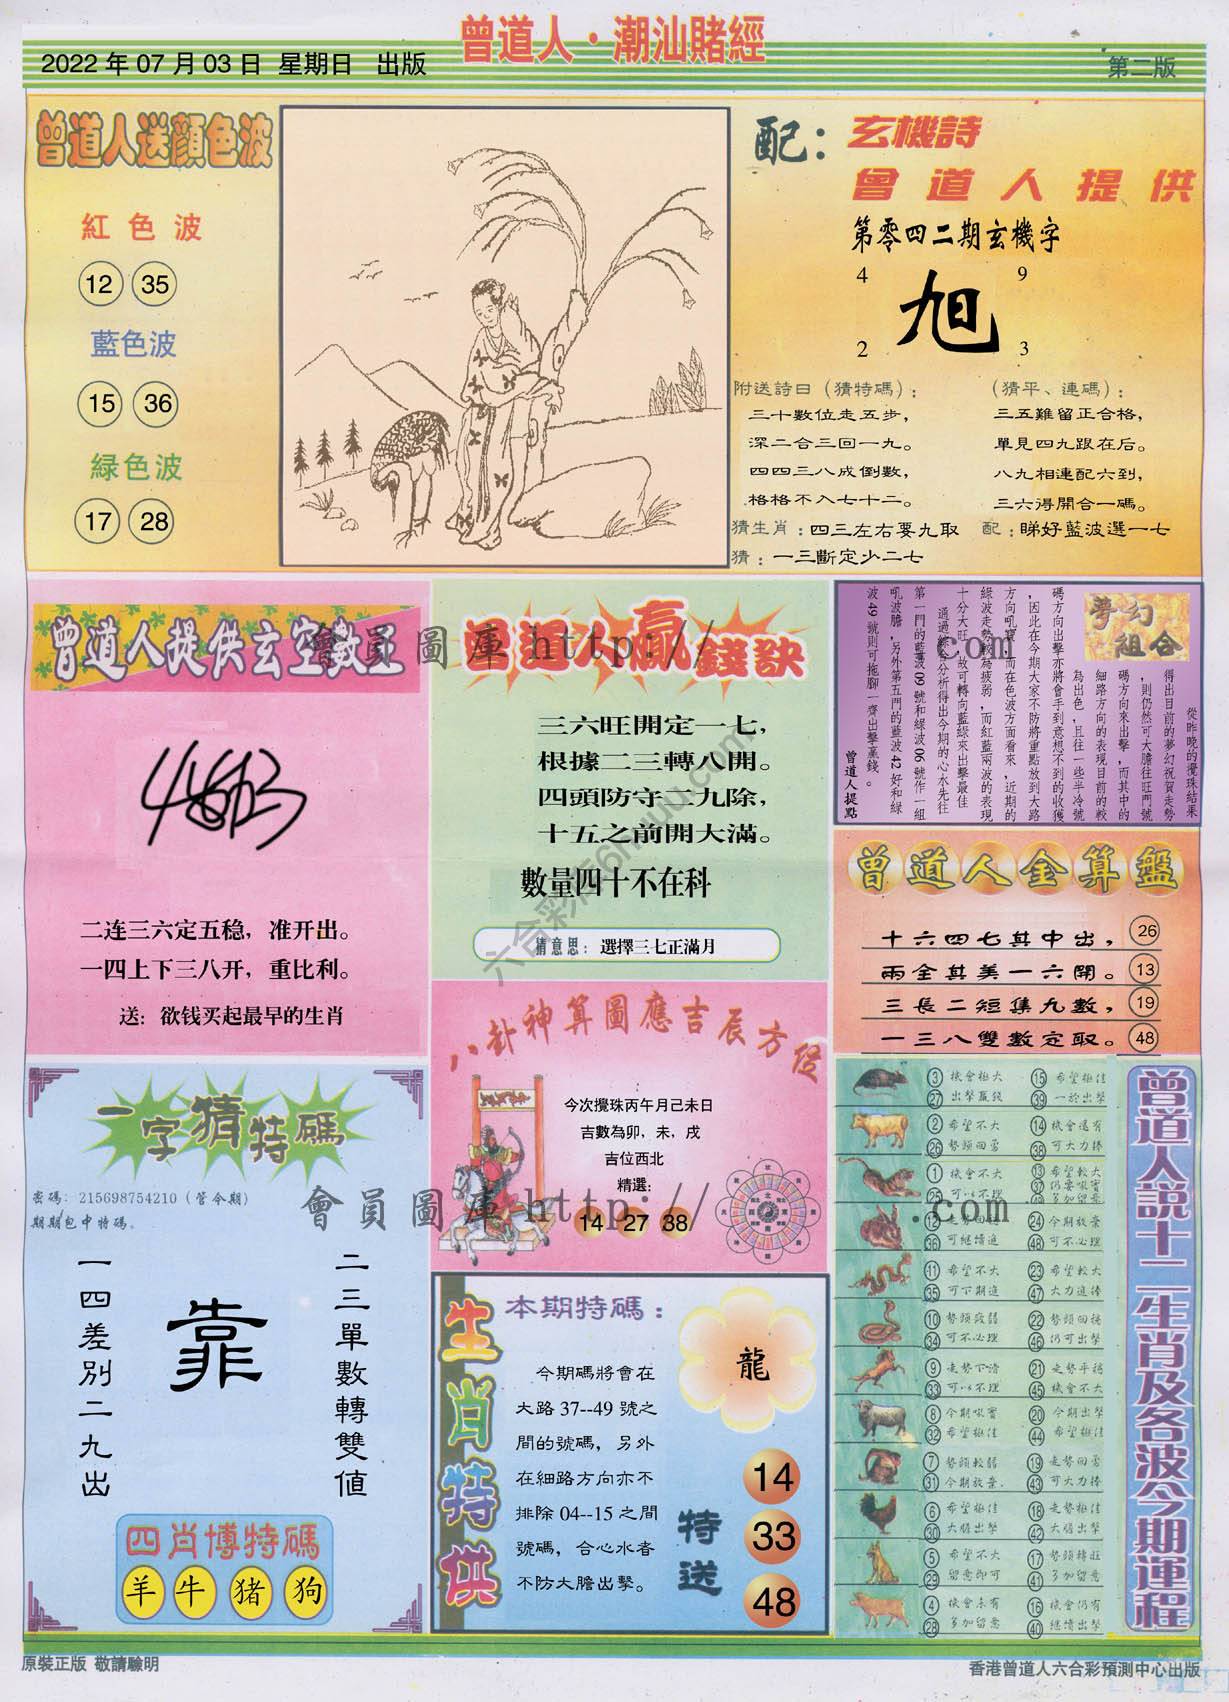 曾道人·潮汕賭經
2022 年 07 月 03 日 星期日 出版
第二版
曾道人送顏色波
紅色波
12 35
藍色波
15 36
緑色波
17 28
配：
玄機詩
曾道人提供
第零四二期玄機字
4 9
旭
2 3
附送詩曰（猜特碼）：
三十數位走五步，
深二合三回一九。
四四三八成倒數，
格格不入七十二。
（猜平、連碼）：
三五難留正合格，
單見四九跟在后。
八九相連配六到，
三六得開合一碼。
猜生肖：四三左右要九取
配：睇好藍波選一七
猜：一三斷定少二七
曾道人提供玄空數王
二连三六定五稳，准开出。
一四上下三八开，重比利。
送：欲钱买起最早的生肖
曾道人贏錢訣
三六旺開定一七，
根據二三轉八開。
四頭防守二九除，
十五之前開大滿。
數量四十不在科
猜意思：選擇三七正滿月
夢幻組合
從昨晚的攪珠結果
得出目前的夢幻祝賀走勢
，則仍然可大膽往旺門號
碼方向來出擊，而其中的
細路方向的表現目前的較
為出色，且往一些半冷號
碼方向出擊亦將會手到意想不到的收獲
，因此在今期大家不防將重點放到大路
方向吼寶，而在色波方面看來，近期的
綠波走勢較為疲弱，而紅藍兩波的表現
十分大旺，故可轉向藍綠來出擊最佳
通過綜合分析得出今期的心水先往
第一門的藍波 09 號和綠波 06 號作一組
吼波膽，另外第五門的藍波 42 好和綠
波 49 號則可拖腳一齊出擊贏錢。
曾道人提點
曾道人金算盤
十六四七其中出， 26
兩全其美一六開。 13
三長二短集九數， 19
一三八雙數定取。 48
八卦神算圖應吉辰方位
今次攪珠丙午月己未日
吉數為卯，未，戌
吉位西北
精選：
14 27 38
一字猜特碼
密碼：215698754210（管今期）
期期包中特碼。
一四差別二九出
靠
二三單數轉雙值
四肖博特碼
羊 牛 猪 狗
生肖特供
本期特碼：
龍
今期碼將會在
大路 37--49 號之
間的號碼，另外
在細路方向亦不
排除 04--15 之間
號碼，合心水者
不防大膽出擊。
特送
14
33
48
曾道人説十二生肖及各波今期運程
3 機會極大 15 希望極佳
27 出擊贏錢 39 一於出擊
2 希望不大 14 機會還有
26 勢頭回勇 38 可大力捧
1 機會不大 13 希望較大
25 可以不理 37 仍要吼實
多加留意
12 走勢回旺 24 今期放棄
36 可繼續追 48 可不必理
11 希望不大 23 希望較大
35 可下期追 47 大力追捧
10 勢頭疲弱 22 勢頭回揚
34 可不必理 46 仍可出擊
9 走勢下滑 21 走勢平穩
33 可以不理 45 機會不大
8 今期吼實 20 今期出擊
32 希望極佳 44 希望極佳
7 勢頭較弱 19 走勢回勇
31 今期放棄. 43 可大力捧
6 希望極佳 18 走勢極佳
30 大膽出擊 42 大膽出擊
5 希望不大 17 勢頭轉旺
29 留意即可 41 多加留意
4 機會未有 16 機會仍有
28 多加留意 40 繼續出擊
會員圖庫 http://
.com
會員圖庫 http://
.com
原裝正版 敬請驗明
香港曾道人六合彩預測中心出版